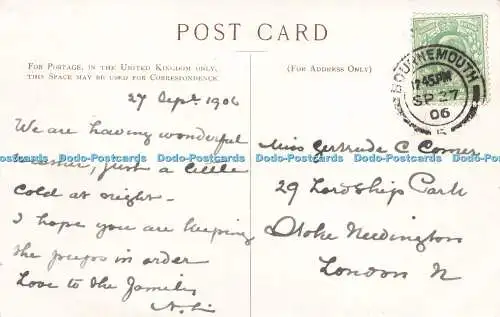 POST CARD
FOR POSTAGE, IN THE UNITED KINGDOM ONLY,
THIS SPACE MAY BE USED FOR CORRESPONDENCE.
(FOR ADDRESS ONLY)
BOURNEMOUTH
12.45 PM
SP 27
06
27 Sept. 1906
We are having wonderful
weather, just a little
cold at night.
I hope you are keeping
the in order
Love to the family
Miss Gertrude C Comer
29 Lordship Park
Stoke Newington
London N
Dodo-Postcards Dodo-Postcards Dodo-Postcards Dodo-Postcards Dodo-Postcards